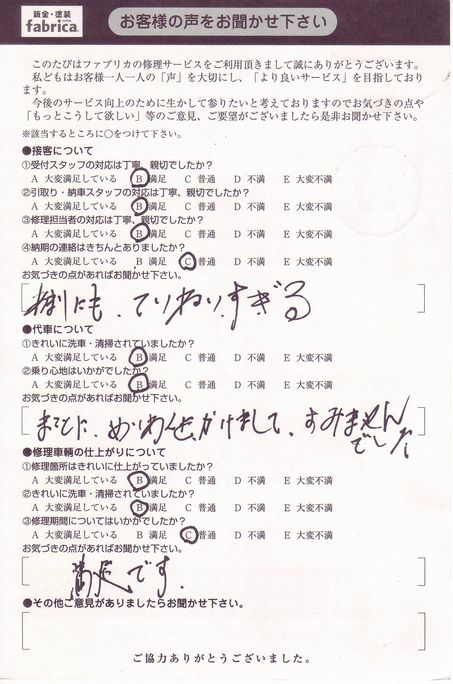 鈑金・塗装
fabrica
お客様の声をお聞かせ下さい
このたびはファブリカの修理サービスをご利用頂きまして誠にありがとうございます。
私どもはお客様一人一人の「声」を大切にし、「より良いサービス」を目指しており
ます。
今後のサービス向上のために生かして参りたいと考えておりますのでお気づきの点や
「もっとこうして欲しい」等のご意見、ご要望がございましたら是非お聞かせ下さい。
※該当するところに○をつけて下さい。
●接客について
①受付スタッフの対応は丁寧、親切でしたか？
A 大変満足している B 満足 C 普通 D 不満 E 大変不満
②引取り・納車スタッフの対応は丁寧、親切でしたか？
A 大変満足している B 満足 C 普通 D 不満 E 大変不満
③修理担当者の対応は丁寧、親切でしたか？
A 大変満足している B 満足 C 普通 D 不満 E 大変不満
④納期の連絡はきちんとありましたか？
A 大変満足している B 満足 C 普通 D 不満 E 大変不満
お気づきの点があればお聞かせ下さい。
にも、ていねいすぎる
●代車について
①きれいに洗車・清掃されていましたか？
A 大変満足している B 満足 C 普通 D 不満 E 大変不満
②乗り心地はいかがでしたか？
A 大変満足している B 満足 C 普通 D 不満 E 大変不満
お気づきの点があればお聞かせ下さい。
まことに、めいわくをかけまして、すみません
でした
●修理車輌の仕上がりについて
①修理箇所はきれいに仕上がっていましたか？
A 大変満足している B 満足 C 普通 D 不満 E 大変不満
②きれいに洗車・清掃されていましたか？
A 大変満足している B 満足 C 普通 D 不満 E 大変不満
③修理期間についてはいかがでしたか？
A 大変満足している B 満足 C 普通 D 不満 E 大変不満
お気づきの点があればお聞かせ下さい。
満足です.
●その他ご意見がありましたらお聞かせ下さい。
ご協力ありがとうございました。